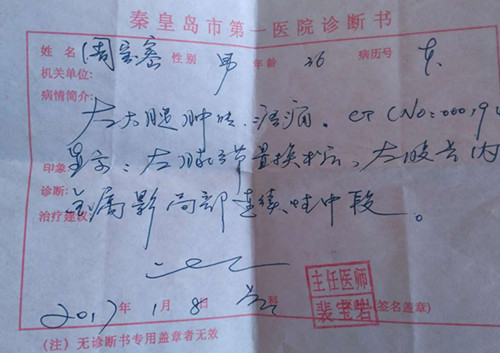 秦皇岛市第一医院诊断书
姓名 周 性别 男 年龄 36 病历号
机关单位:
病情简介:
左大腿肿 疼痛。CT(No:00019
印象: 显示:左髋关节置换术后,左股骨内
诊断: 金属影局部连续性中段。
治疗建议:
2017年1月8日 科 主任医师 裴宝岩 (签名盖章)
(注)无诊断书专用盖章者无效